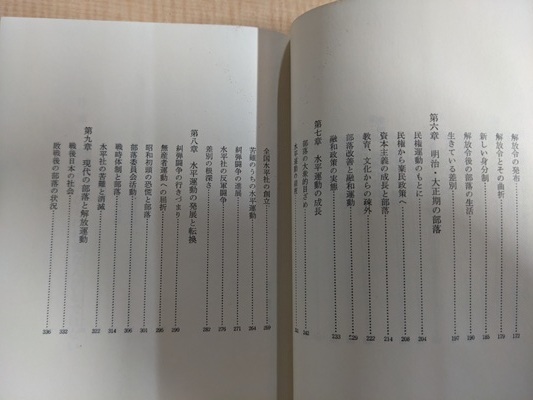 解放令の発布 173
解放令とその曲折 179
新しい身分制 188
解放令後の部落の生活 189
生きている差別 197
第六章 明治・大正期の部落
民権運動のもとに 204
民権から棄民政策へ 208
資本主義の成長と部落 214
教育、文化からの疎外 222
部落改善と融和運動 229
融和政策の実態 233
第七章 水平運動の成長
部落の大衆的目ざめ
全国水平社の創立 259
苦難のうちの水平運動 264
糾弾闘争の進展 271
水平社の反軍闘争 276
差別の根深さ 282
第八章 水平運動の発展と転換
糾弾闘争の行きづまり 290
無産者運動への屈折 298
昭和初頭の恐慌と部落 301
部落委員会活動 306
戦時体制と部落 314
水平社の苦難と消滅 322
第九章 現代の部落と解放運動
戦後日本の社会 332
敗戦後の部落の状況 336